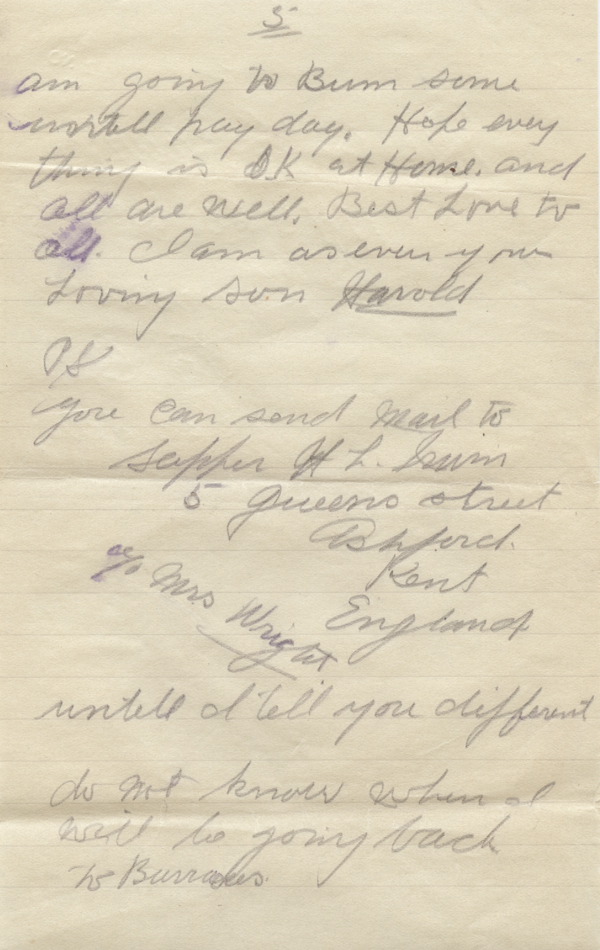 5
am going to Bum some
untell pay day. Hope every
thing is OK at Home. and
all are well. Best Love to
all. I am as ever your
Loving son Harold
PS
you can send mail to
Sapper H L. Irwin
5 Queens street
Ashford.
Kent
c/o Mrs Wright
England
untell I tell you different
do not know when I
will be going back
to Burrows.